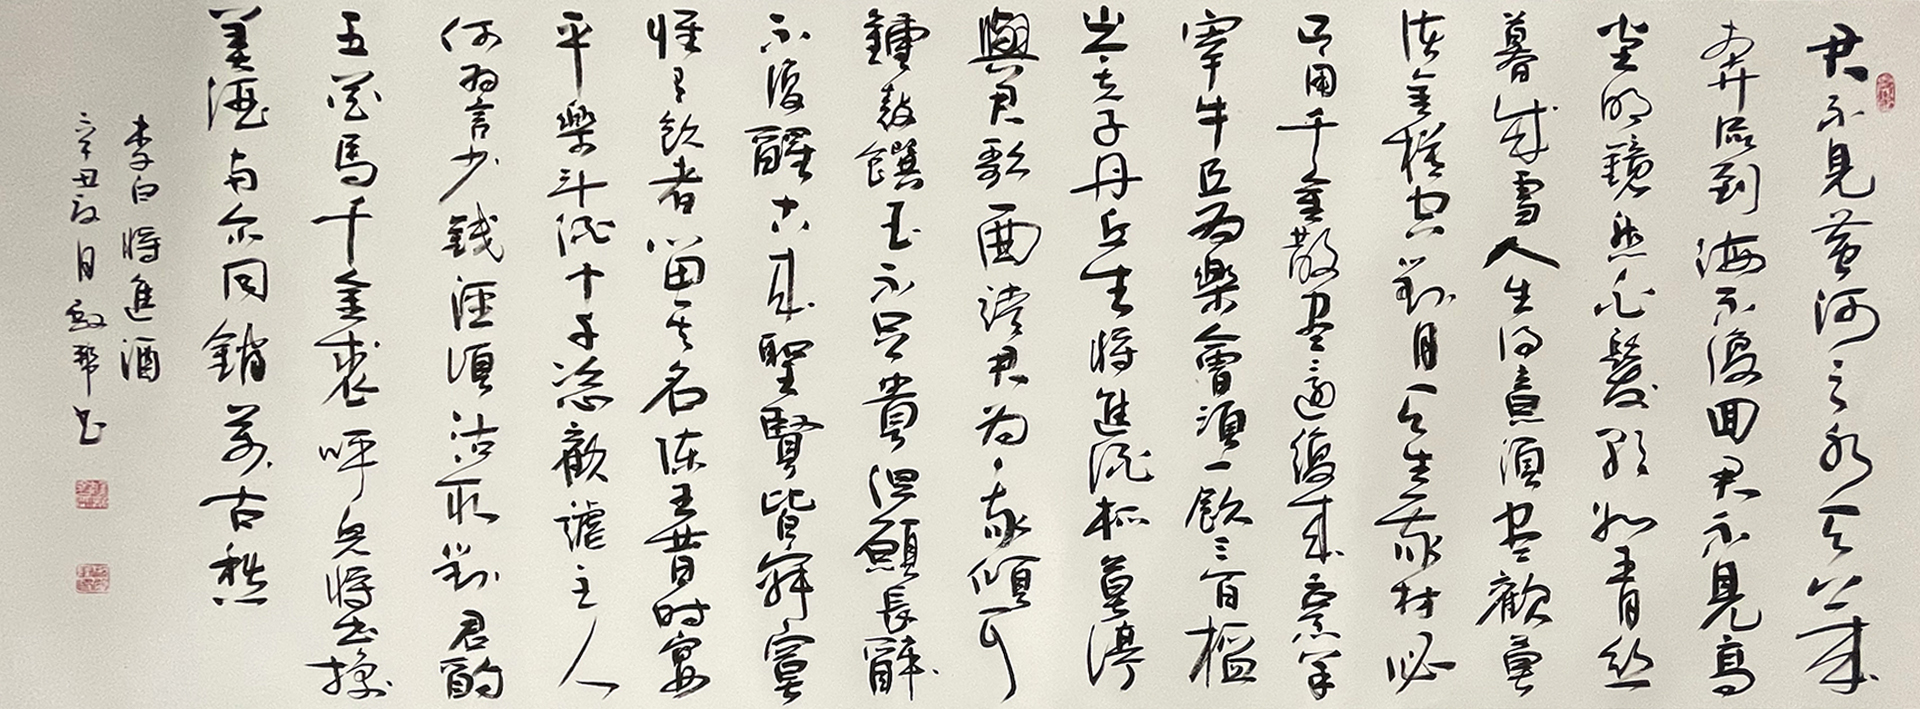 君不見黄河之水天上来
奔流到海不復回君不見高
堂明鏡悲白髮朝如青丝
暮成雪人生得意須尽歡莫
使金樽空對月天生我材必
有用千金散尽還復来烹羊
宰牛且為樂會須一飲三百杯
岑夫子丹丘生將進酒杯莫停
與君歌一曲請君为我傾耳
鐘鼓饌玉不足貴但願長醉
不復醒古来聖賢皆寂寞
惟有飲者留其名陈王昔时宴
平樂斗酒十千恣歡謔主人
何为言少錢径須沽取對君酌
五花馬千金裘呼兒將出換
美酒与尔同銷萬古愁
李白將進酒
辛丑 月 书